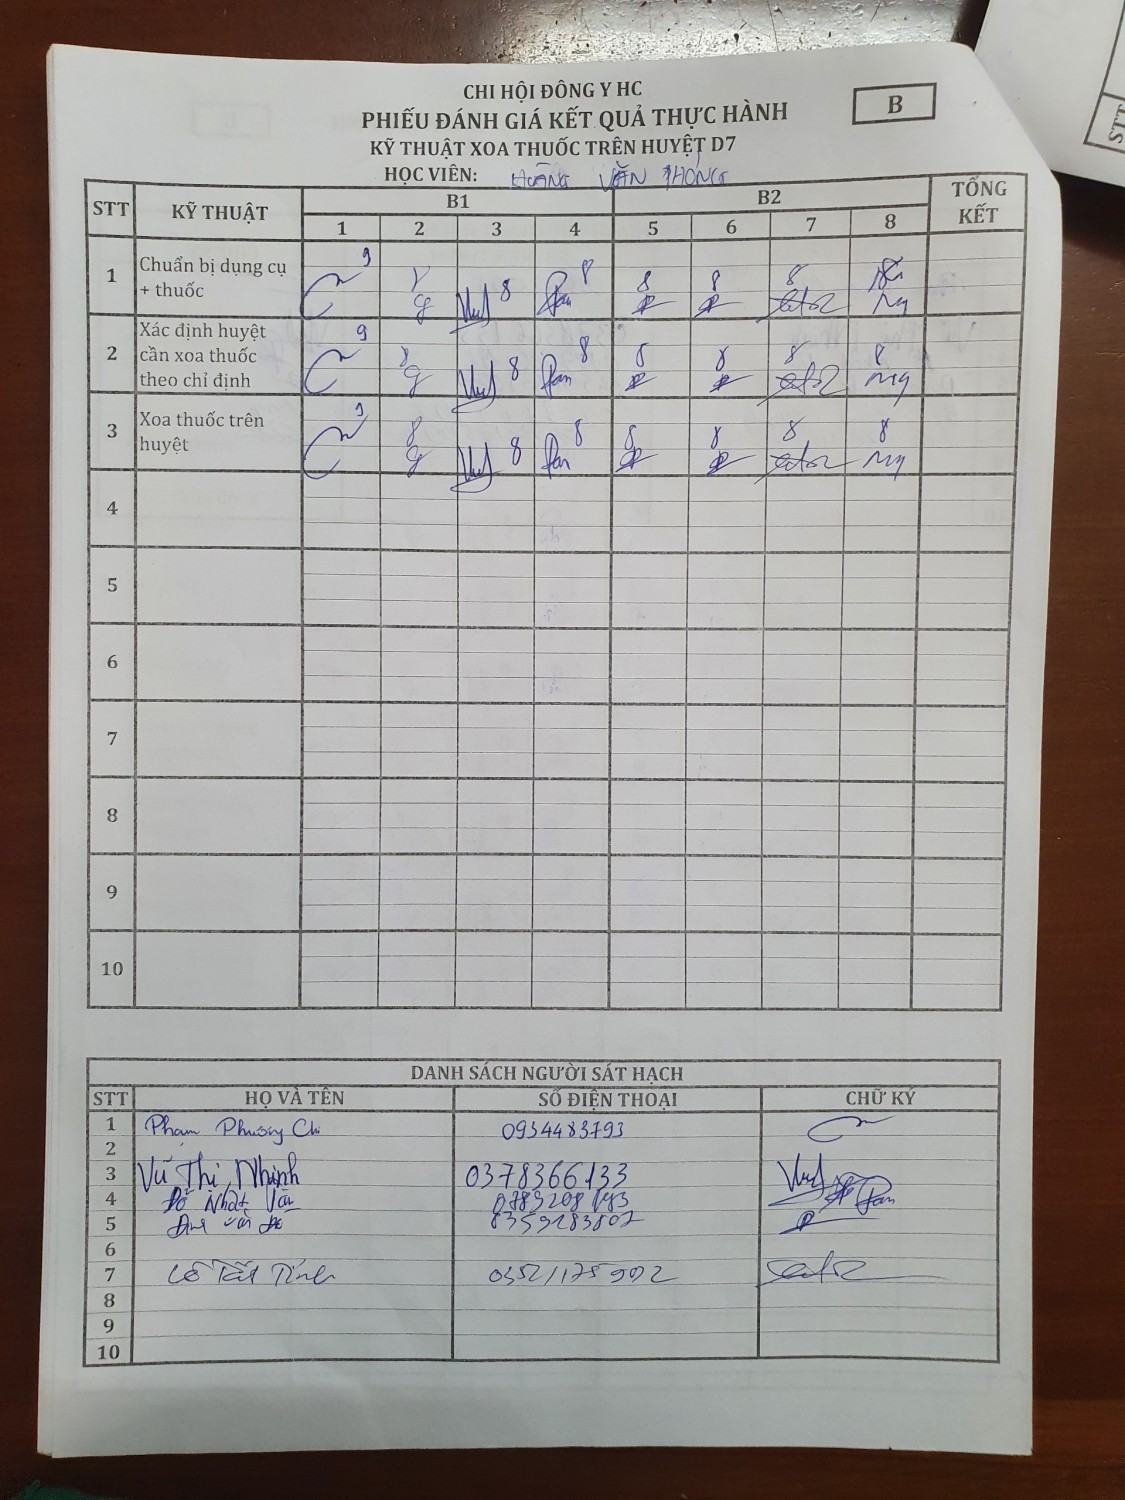 CHI HỘI ĐÔNG Y HC
PHIẾU ĐÁNH GIÁ KẾT QUẢ THỰC HÀNH
B
KỸ THUẬT XOA THUỐC TRÊN HUYỆT D7
HỌC VIÊN: HOÀNG VĂN THÔNG
STT KỸ THUẬT B1 B2 TỔNG KẾT
1 2 3 4 5 6 7 8
1 Chuẩn bị dụng cụ + thuốc 9 8 8 8 8 8 8
2 Xác định huyệt cần xoa thuốc theo chỉ định 9 8 8 8 8 8 8 8
3 Xoa thuốc trên huyệt 9 8 8 8 8 8 8 8
4
5
6
7
8
9
10
DANH SÁCH NGƯỜI SÁT HẠCH
STT HỌ VÀ TÊN SỐ ĐIỆN THOẠI CHỮ KÝ
1 Phạm Phương Chi 0934483793
2
3 Vũ Thị Nhịnh 0378366133
4 Đỗ Nhất Văn
5
6
7 Lê Tất Tính
8
9
10